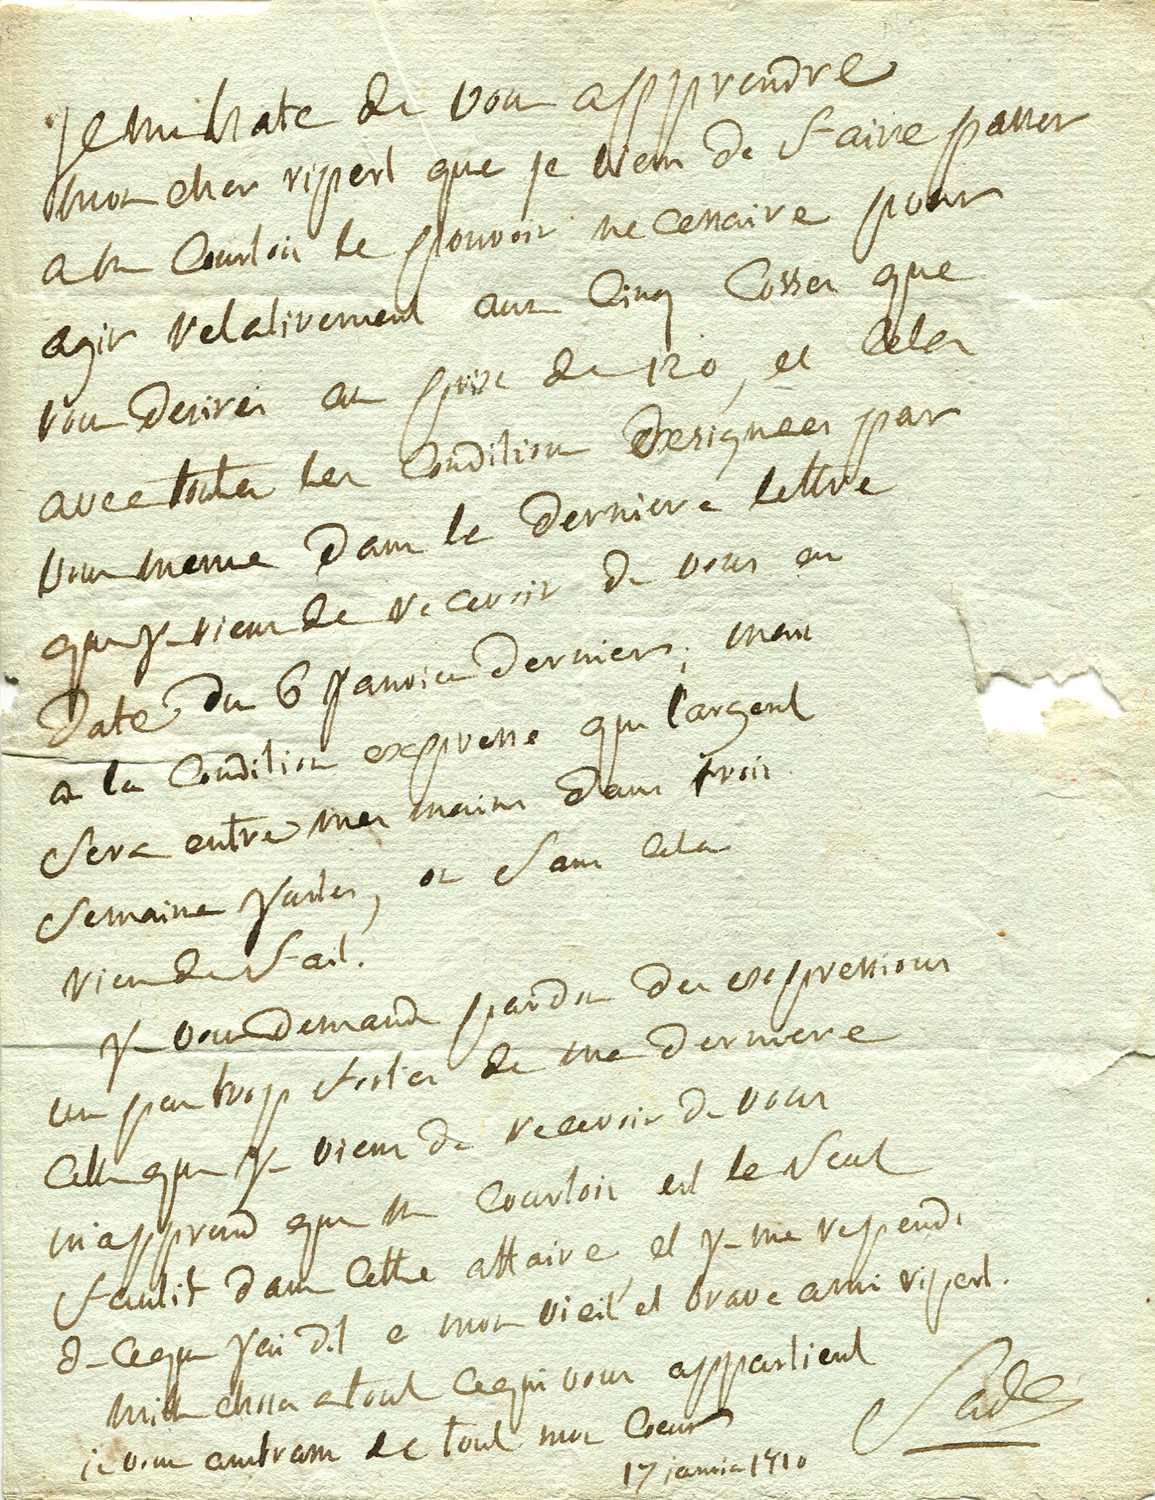 je me hate de vous apprendre
mon cher ripert que je viens de faire passer
a m Courtois le pouvoir necessaire pour
agir relativement aux Cinq Cosses que
vous desirés au prix de 120, et cela
avec toutes les Condition designees par
vous meme dans le derniere lettre
que je viens de recevoir de vous en
Date du 6 janvier derniers; mais
a la Condition expresse que l'argent
sera entre mes mains dans trois
semaine justes, ou sans cela
rien de fait.
je vous demande pardon des expressions
un peu trop fortes de ma derniere
Celle que je viens de recevoir de vous
m'apprend que m Courtois est le seul
fautif dans Cette affaire, et je me repend
de ceque j'ai dit a mon vieil et brave ami ripert.
mille choses a tout ce qui vous appartient
je vous embrasse de tout mon Coeur
Sade
17 janvier 1810